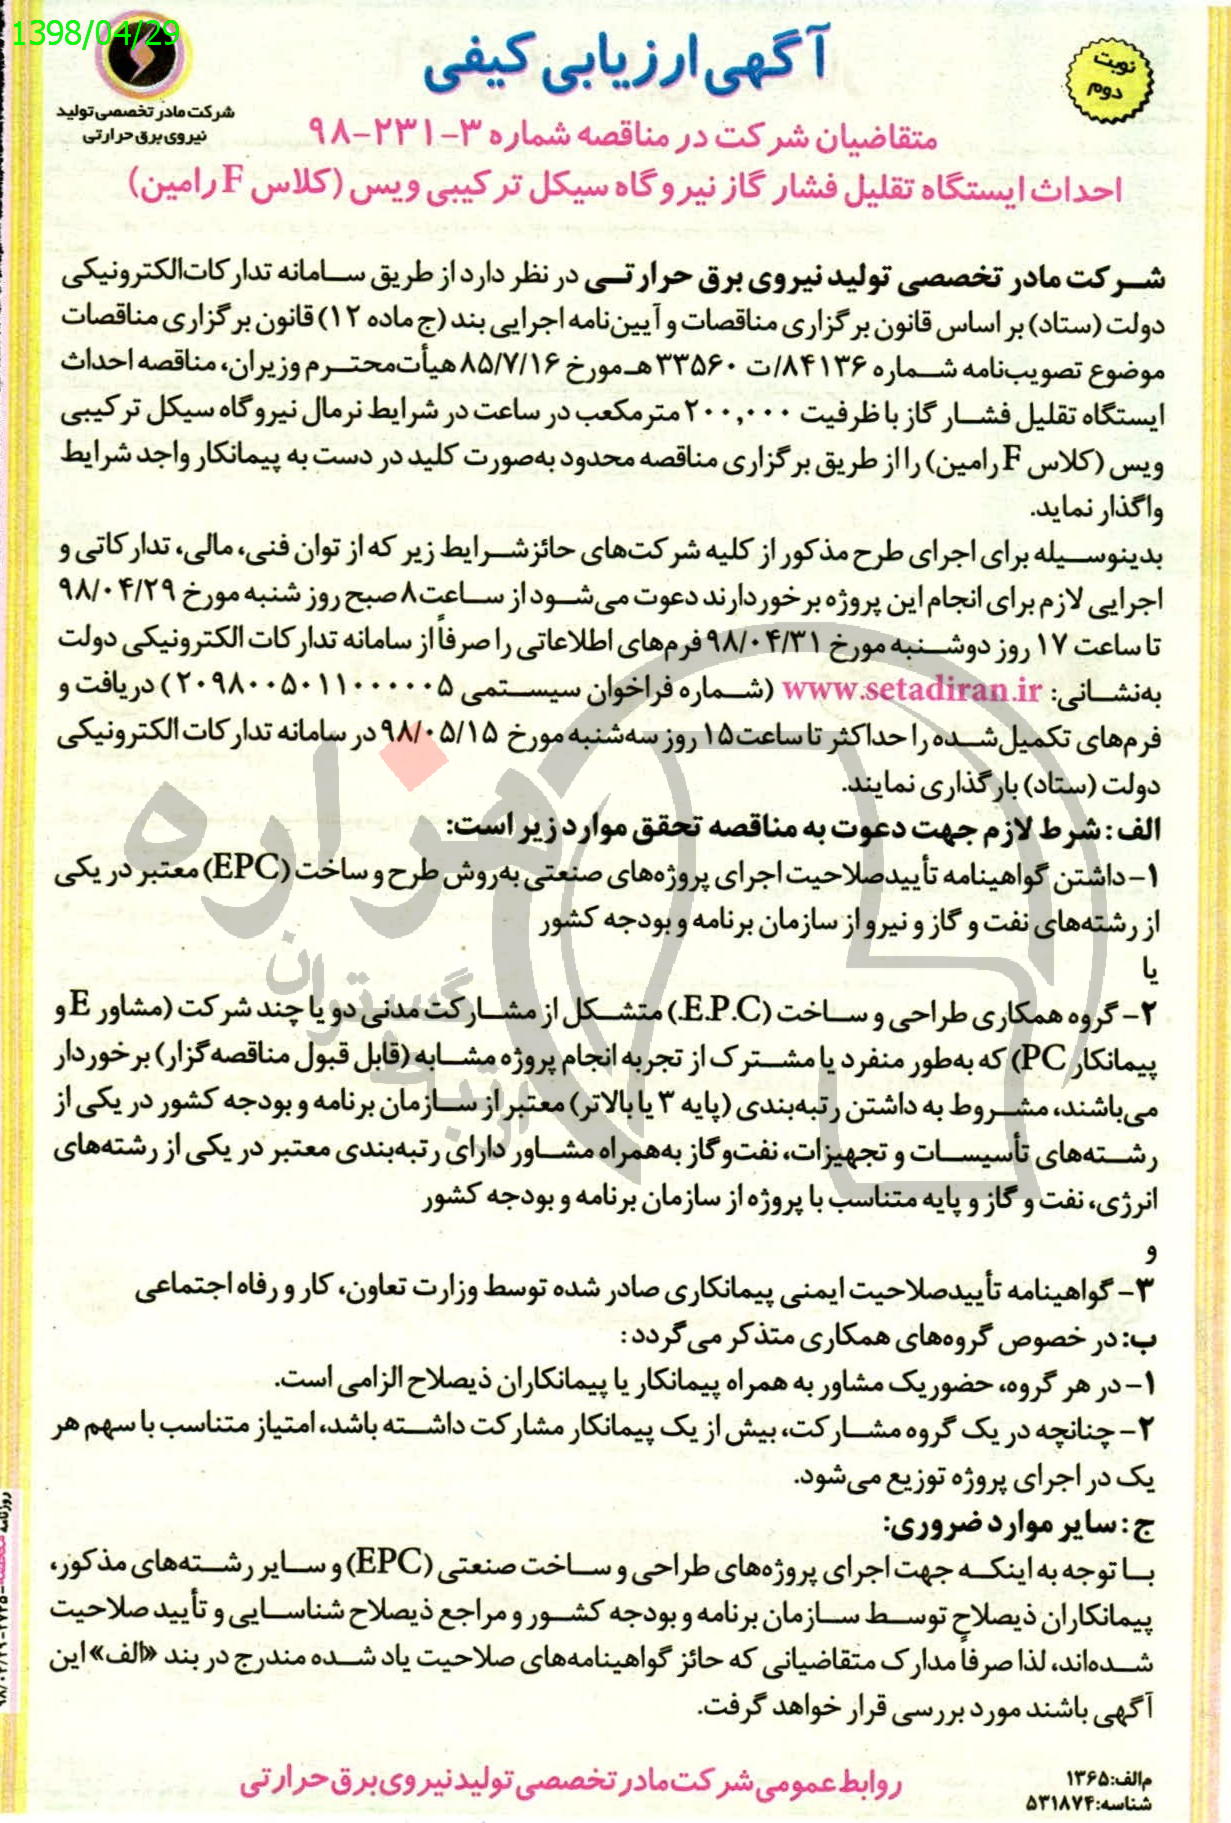 1398/04/29
شرکت مادر تخصصی تولید
نیروی برق حرارتی
نوبت
دوم
آگهی ارزیابی کیفی
متقاضیان شرکت در مناقصه شماره ۳-۲۳۱-۹۸
احداث ایستگاه تقلیل فشار گاز نیروگاه سیکل ترکیبی ویس (کلاس F رامین)
شرکت مادر تخصصی تولید نیروی برق حرارتی در نظر دارد از طریق سامانه تدارکات‌الکترونیکی
دولت (ستاد) بر اساس قانون برگزاری مناقصات و آیین‌نامه اجرایی بند (ج ماده ۱۲) قانون برگزاری مناقصات
موضوع تصویب‌نامه شماره ۸۴۱۳۶/ت ۳۳۵۶۰هـ مورخ ۸۵/۷/۱۶ هیأت‌محترم وزیران، مناقصه احداث
ایستگاه تقلیل فشار گاز با ظرفیت ۲۰۰,۰۰۰ مترمکعب در ساعت در شرایط نرمال نیروگاه سیکل ترکیبی
ویس (کلاس F رامین) را از طریق برگزاری مناقصه محدود به‌صورت کلید در دست به پیمانکار واجد شرایط
واگذار نماید.
بدینوسیله برای اجرای طرح مذکور از کلیه شرکت‌های حائزشرایط زیر که از توان فنی، مالی، تدارکاتی و
اجرایی لازم برای انجام این پروژه برخوردارند دعوت می‌شود از ساعت ۸ صبح روز شنبه مورخ ۹۸/۰۴/۲۹
تا ساعت ۱۷ روز دوشنبه مورخ ۹۸/۰۴/۳۱ فرم‌های اطلاعاتی را صرفاً از سامانه تدارکات الکترونیکی دولت
به‌نشانی: www.setadiran.ir (شماره فراخوان سیستمی ۲۰۹۸۰۰۵۰۱۱۰۰۰۰۰۵) دریافت و
فرم‌های تکمیل‌شده را حداکثر تا ساعت ۱۵ روز سه‌شنبه مورخ ۹۸/۰۵/۱۵ در سامانه تدارکات الکترونیکی
دولت (ستاد) بارگذاری نمایند.
الف: شرط لازم جهت دعوت به مناقصه تحقق موارد زیر است:
۱- داشتن گواهینامه تأییدصلاحیت اجرای پروژه‌های صنعتی به‌روش طرح و ساخت (EPC) معتبر در یکی
از رشته‌های نفت و گاز و نیرو از سازمان برنامه و بودجه کشور
یا
۲- گروه همکاری طراحی و ساخت (E.P.C.) متشکل از مشارکت مدنی دو یا چند شرکت (مشاور E و
پیمانکار PC) که به‌طور منفرد یا مشترک از تجربه انجام پروژه مشابه (قابل قبول مناقصه‌گزار) برخوردار
می‌باشند، مشروط به داشتن رتبه‌بندی (پایه ۳ یا بالاتر) معتبر از سازمان برنامه و بودجه کشور در یکی از
رشته‌های تأسیسات و تجهیزات، نفت‌و گاز به‌همراه مشاور دارای رتبه‌بندی معتبر در یکی از رشته‌های
انرژی، نفت و گاز و پایه متناسب با پروژه از سازمان برنامه و بودجه کشور
و
۳- گواهینامه تأییدصلاحیت ایمنی پیمانکاری صادر شده توسط وزارت تعاون، کار و رفاه اجتماعی
ب: در خصوص گروه‌های همکاری متذکر می‌گردد:
۱- در هر گروه، حضور یک مشاور به همراه پیمانکار یا پیمانکاران ذیصلاح الزامی است.
۲- چنانچه در یک گروه مشارکت، بیش از یک پیمانکار مشارکت داشته باشد، امتیاز متناسب با سهم هر
یک در اجرای پروژه توزیع می‌شود.
ج: سایر موارد ضروری:
با توجه به اینکه جهت اجرای پروژه‌های طراحی و ساخت صنعتی (EPC) و سایر رشته‌های مذکور،
پیمانکاران ذیصلاح توسط سازمان برنامه و بودجه کشور و مراجع ذیصلاح شناسایی و تأیید صلاحیت
شده‌اند، لذا صرفاً مدارک متقاضیانی که حائز گواهینامه‌های صلاحیت یاد شده مندرج در بند «الف» این
آگهی باشند مورد بررسی قرار خواهد گرفت.
روابط عمومی شرکت مادر تخصصی تولید نیروی برق حرارتی
م‌الف: ۱۳۶۵
شناسه: ۵۳۱۸۷۴
هزاره
گستران